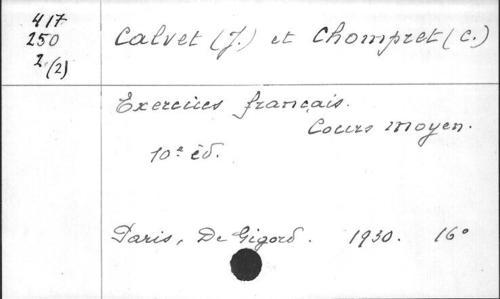 417
250
2 (2)
Calvet (J.) et Chompret (C.)
Exercices français.
Cours moyen.
10e éd.
Paris, De Gigord. 1930. 16°